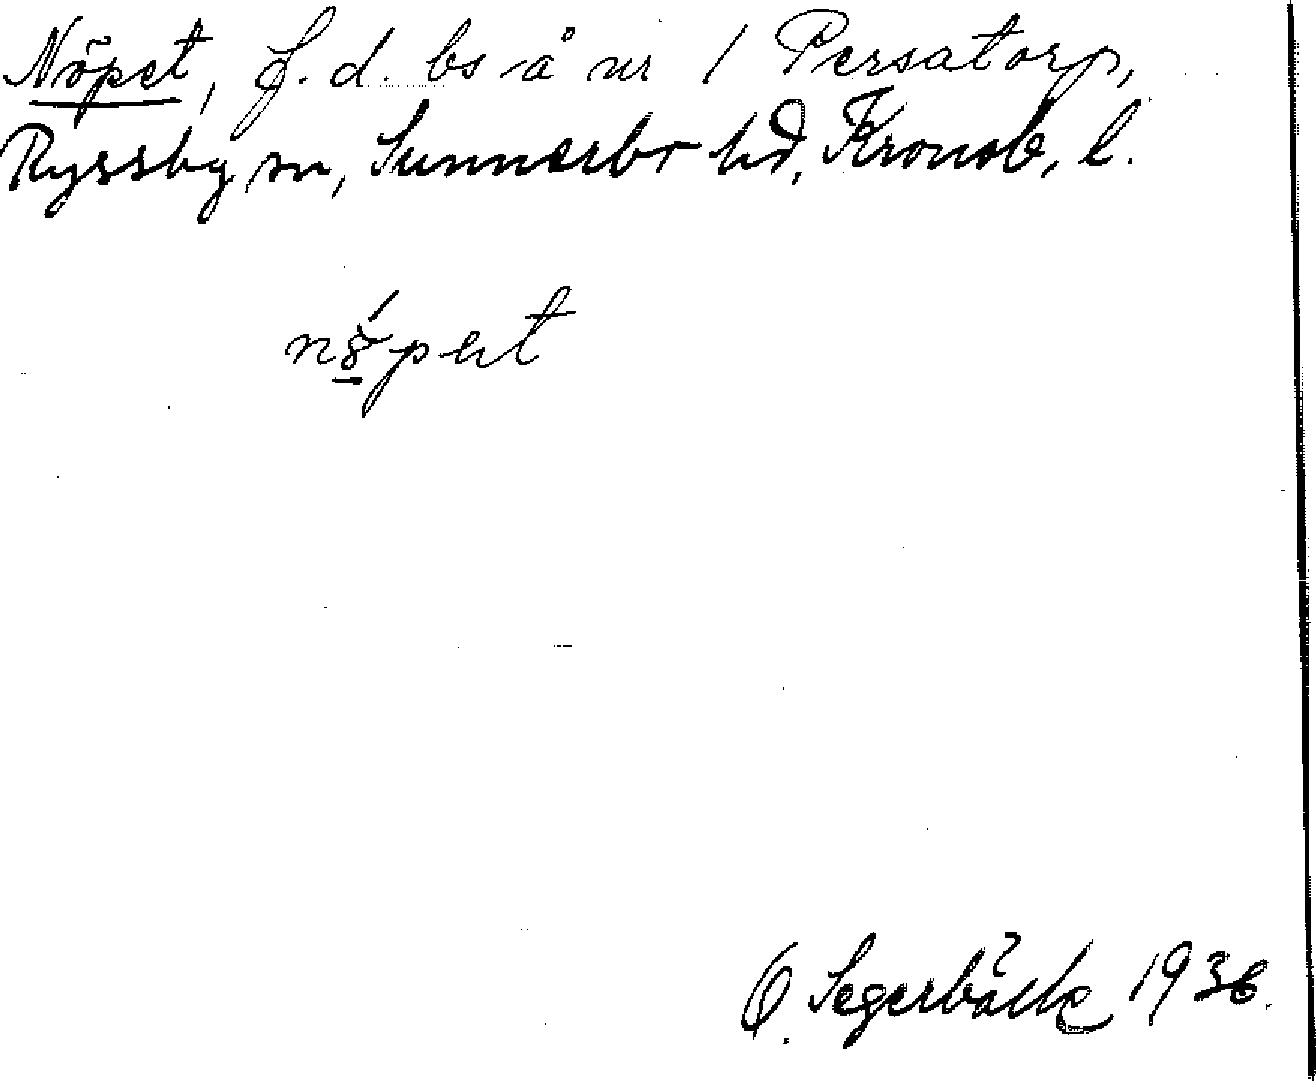 Nöpet, f.d. bs å nr 1 Persatorp,
Ryssby sn, Sunnerbo hd, Kronob. l.
O. Segerbäck 1936.